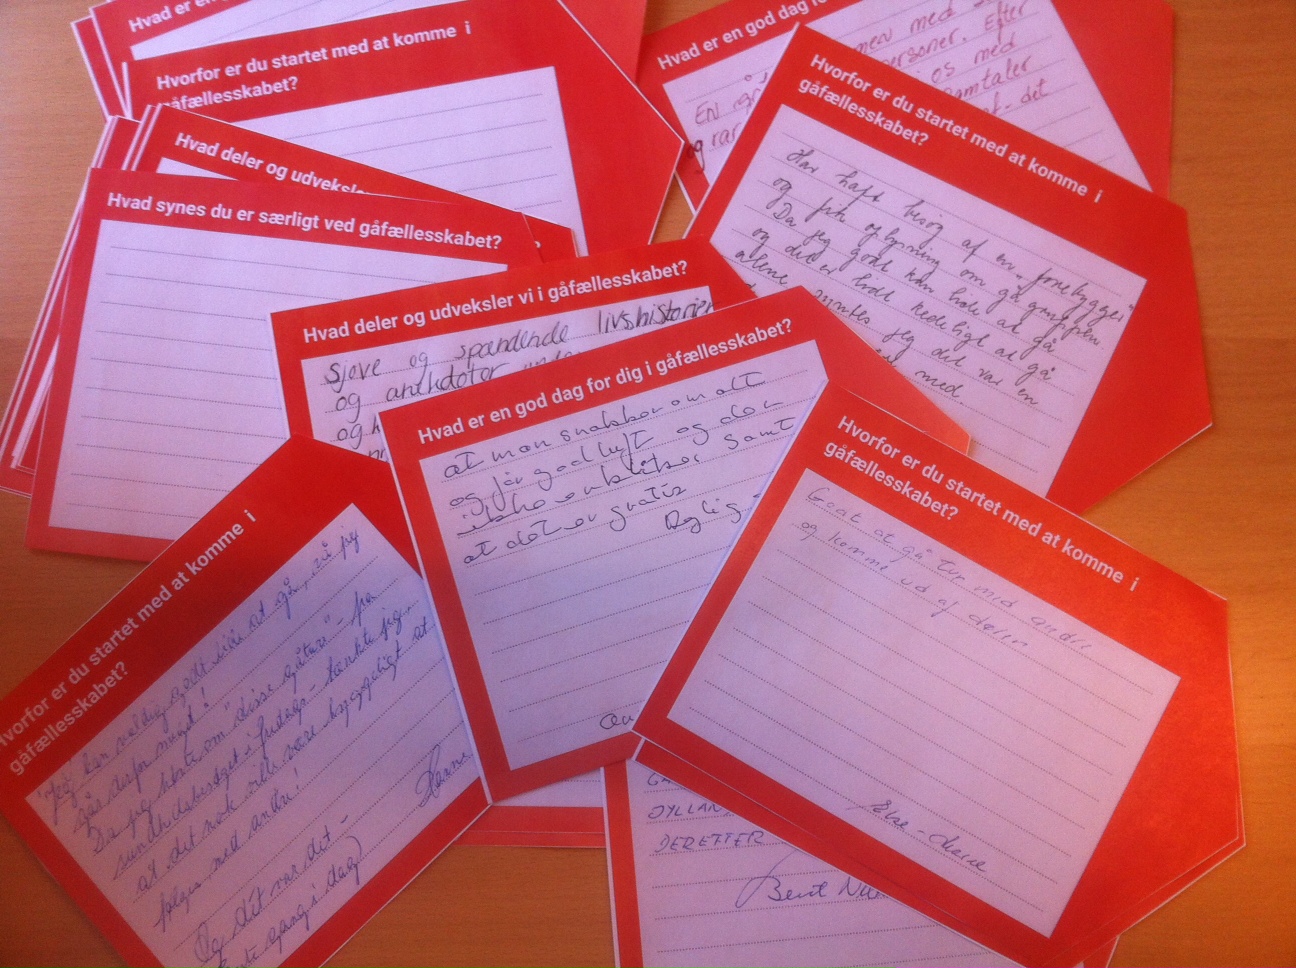 Hvad er en
Hvorfor er du startet med at komme i
gåfællesskabet?
Hvad deler og udveksler
Hvad synes du er særligt ved gåfællesskabet?
Hvad er en god dag fo
men med
personer. Efter
os med
samtaler
det
EN
og rar
Hvorfor er du startet med at komme i
gåfællesskabet?
Har haft besøg af en "forebygger"
og fik oplysning om gågruppen
Da jeg godt kan lide at gå
og det er lidt kedeligt at gå
alene syntes jeg det var en
med.
Hvad deler og udveksler vi i gåfællesskabet?
Sjove og spændende livshistorier
og ankdoter
og
Hvad er en god dag for dig i gåfællesskabet?
at man snakker om alt
og får god luft og der
ikke er samt
at det er gratis
Hvorfor er du startet med at komme i
gåfællesskabet?
Godt at gå tur med andre
og komme ud af døren
Else-Marie
Hvorfor er du startet med at komme i
gåfællesskabet?
"Jeg" kan veldig godt lide at gå, så jeg
går derfor meget!
Da jeg hørte om "disse gåture" - fra
sundhedsbesøget i fredags - tænkte jeg
at det nok ville være hyggeligt at
følges med andre!
Og det var det -
gang i dag)
Hanne
JYLLAN
DEREFTER
Bent